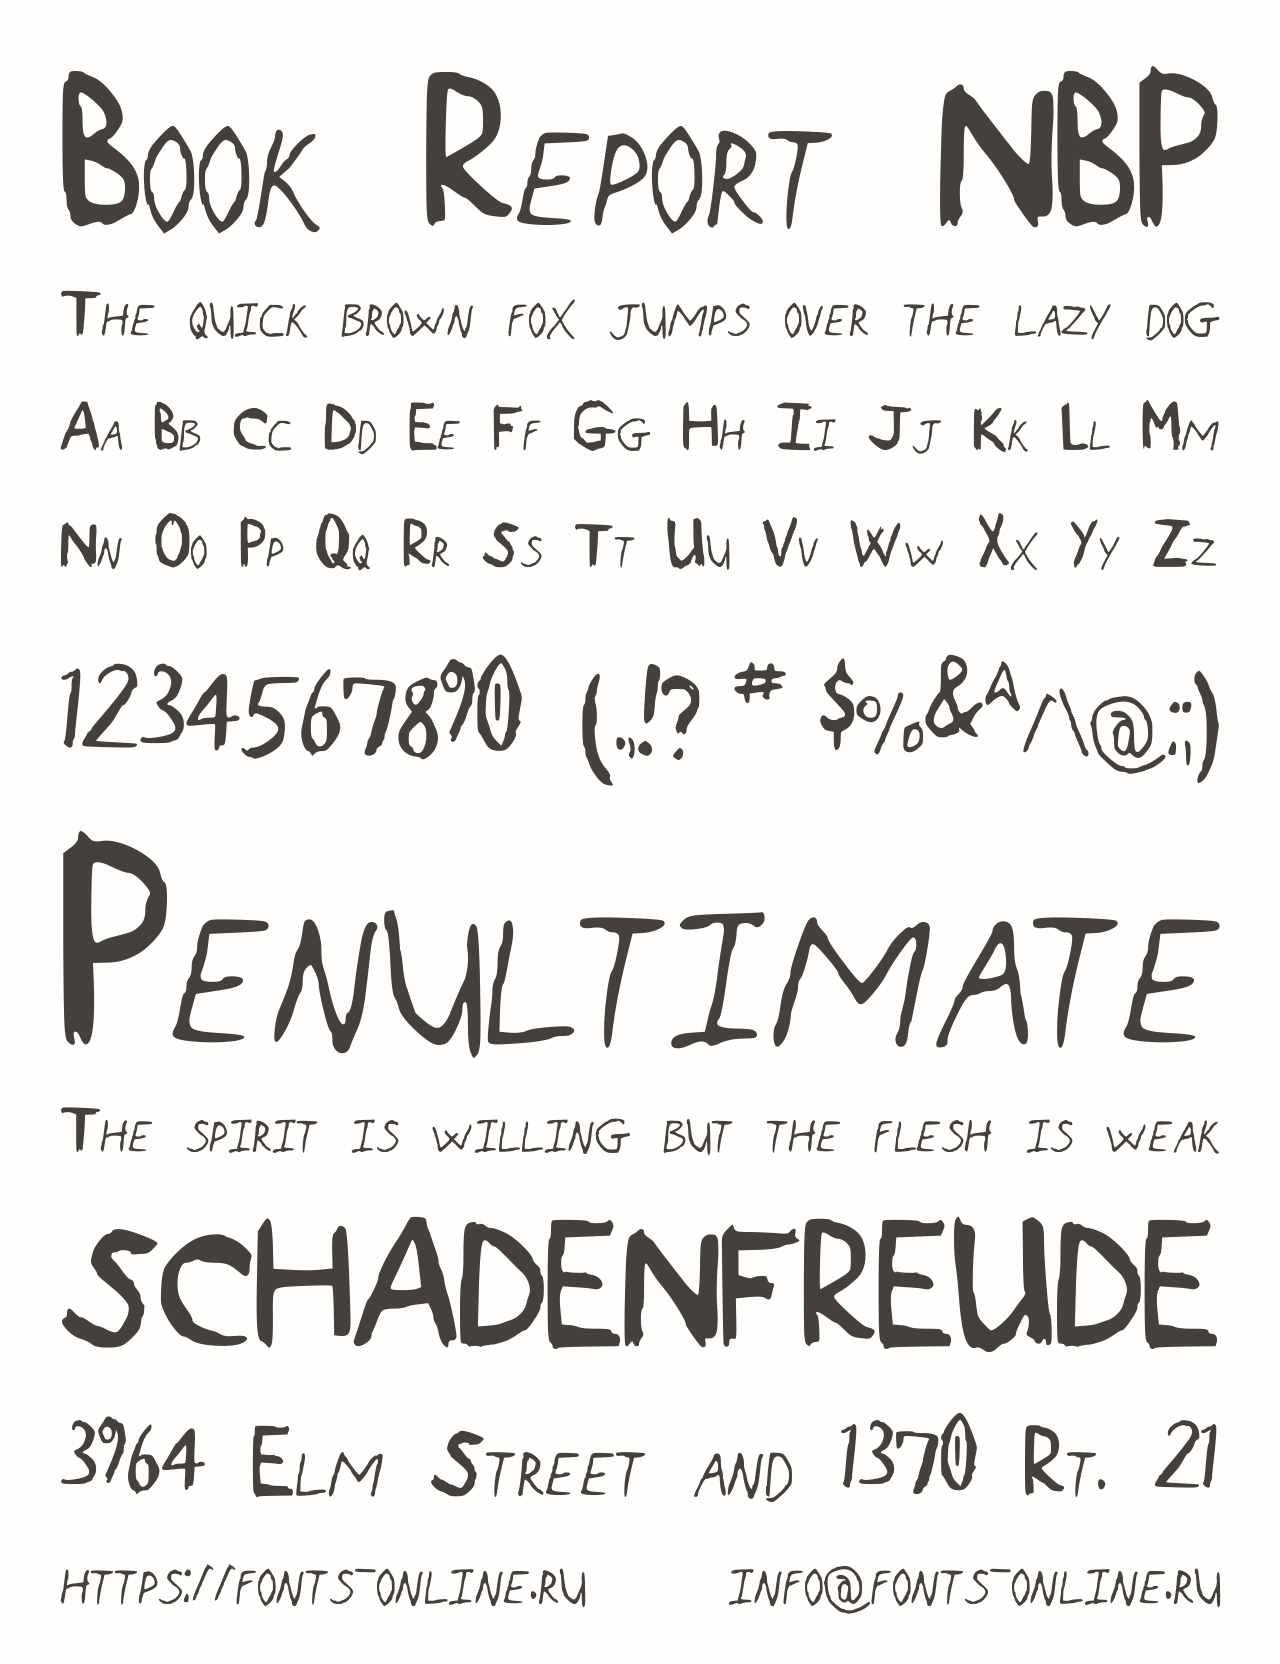 Book Report NBP
The quick brown fox jumps over the lazy dog
Aa Bb Cc Dd Ee Ff Gg Hh Ii Jj Kk Ll Mm
Nn Oo Pp Qq Rr Ss Tt Uu Vv Ww Xx Yy Zz
1234567890 (.,!? # $%&^/\@:;)
Penultimate
The spirit is willing but the flesh is weak
SCHADENFREUDE
3964 Elm Street and 1370 Rt. 21
https://fonts-online.ru info@fonts-online.ru